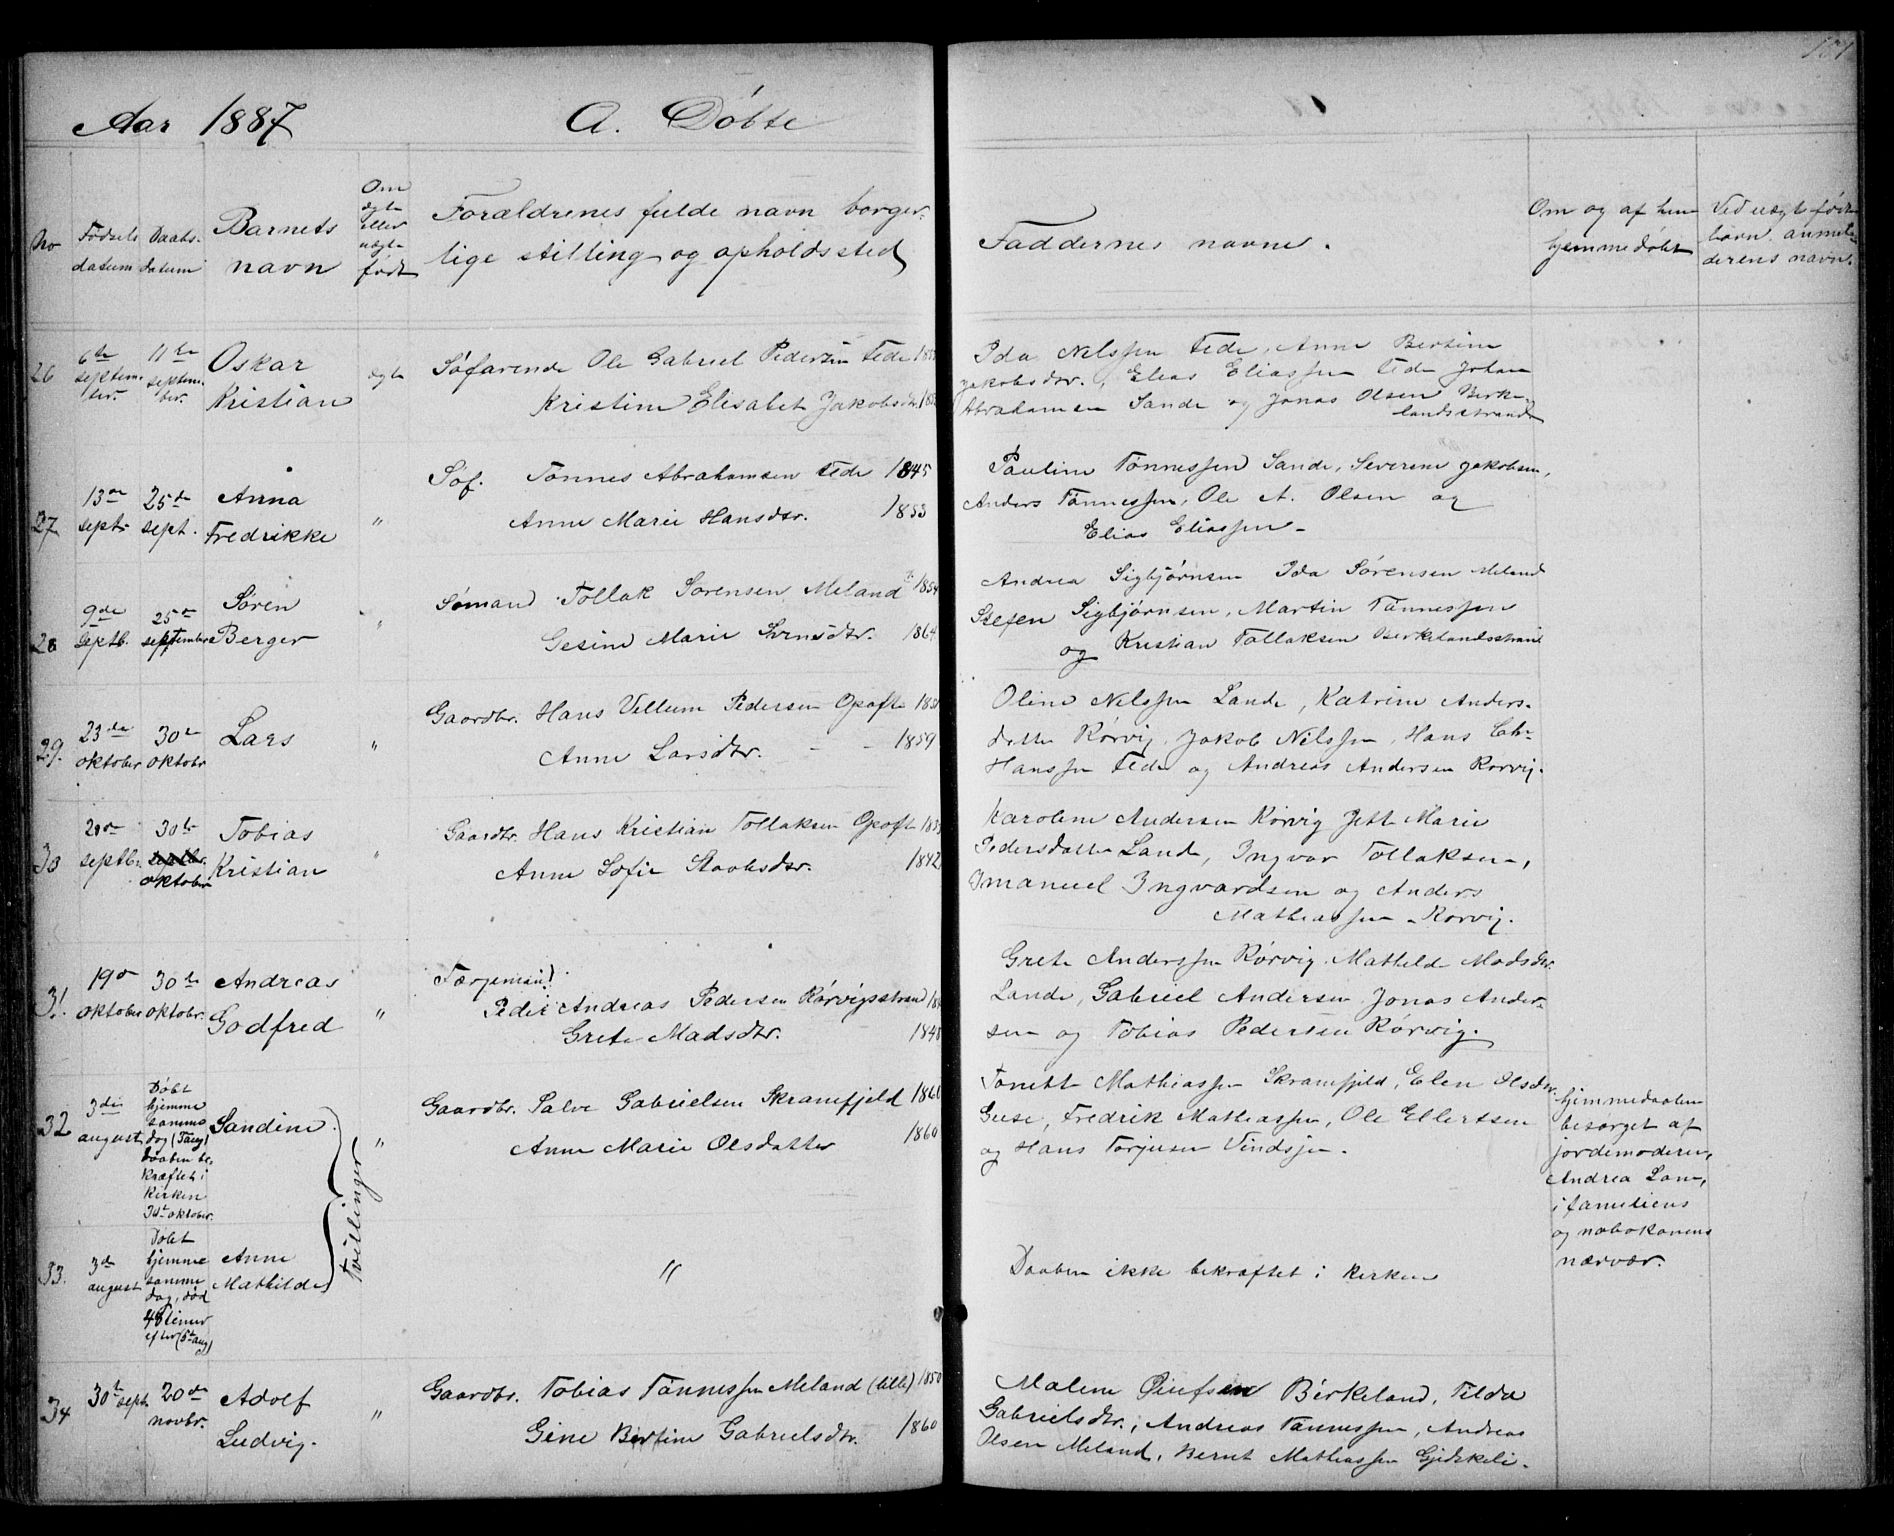 Aar 1887
A. Döbte
No
Födsels datum
Daabs-datum
Barnets navn
Om ægte eller uægte født
Forældrenes fulde navn borger-
lige stilling og opholdssted
Faddernes navne.
Om og af hvem
hjemmedøbt
Ved uægte födte
børn anmel-
derens navn.
26
6te septem-ber.
11te septem-ber.
Oskar
Kristian
ægte
Søfarende Ole Gabriel Pedersen Fede
Kristine Elisabet Jakobsdtr.
Ida Nilssen Fede, Anne Bertine
Jakobsdtr., Elias Eliassen Fede Johan
Abrahamsen Sande og Jonas Olsen Birke-
landsstrand
27
13de septr
25de sept.
Anna
Fredrikke
"
Søf. Tønnes Abrahamsen Fede 1845
Anne Marie Hansdtr. 1853
Pauline Tønnessen Sande, Severine Jakobsen,
Anders Tønnessen, Ole A. Olsen og
Elias Eliassen.
28
9de Septb.
25de september
Søren
Berger
"
Sømand Tollak Sørensen Meland 1854
Gesine Marie Svensdtr. 1864
Andrea Sigbjørnsen Ida Sørensen Meland
Stefen Sigbjørnsen, Martin Tønnessen
og Kristian Tollaksen Birkelandsstrand
29.
23de oktober
30te oktobr
Lars
"
Gaardbr. Hans Villum Pedersen Opofte
Anne Larsdtr. - - 1859
Oline Nilssen Lande, Katrine Anders-
datter Rørvig, Jakob Nilssen, Hans Chr.
Hanssen Fede og Andreas Andersen Rørvig.
30
septbr.
30te septbr. oktober
Tobias
Kristian
"
Gaardbr. Hans Kristian Tollaksen Opofte
Anne Sofie Staaksdtr. 1842
Karoline Andersen Rørvig Jette Marie
Pedersdatter Lande, Ingvar Tollaksen,
Imanuel Ingvardsen og Anders
Mathiassen Rørvig.
31.
19de oktober
30te oktobr.
Andreas
Godfred
"
Færjemand
Peder Andreas Pedersen Rørvigsstrand
Grete Madsdtr.
Grete Anderssen Rørvig. Mathilde Madsdtr.
Lande, Gabriel Andersen Jonas Ander-
sen og Tobias Pedersen Rørvig.
32
3die august
Döbt
hjemme
samme
dag (3aug)
Daaben be-
kræftet i
kirken
oktober.
Sandine
Tvillinger
"
Gaardbr. Salve Gabrielsen Skranefjeld
Anne Marie Olsdatter 1860
Tonette Mathiassen Skranefjeld, Elen Olsdtr.
Guse, Fredrik Mathiassen, Ole Ellertsen
og Hans Torjusen Vindsjen.
Hjemmedaaben
besørget af
jordemoderen,
Andrea Lone,
i familiens
og nabokonens
nærvær.
33.
3de august
Döbt
hjemme
samme
dag, död
48 timer
efter (5te aug)
Anne
Mathilde
"
Daaben ikke bekræftet i kirken
34
30te sept
20de novbr.
Adolf
Ludvig.
"
Gaardbr. Tobias Tønnessen Meland (lille) 1850
Gine Bertine Gabrielsdtr. 1860
Malene Birkeland, Tilda
Gabrielsdtr., Andreas Tønnessen, Andreas
Olsen Meland, Bernt Mathiassen Gjeskeli.